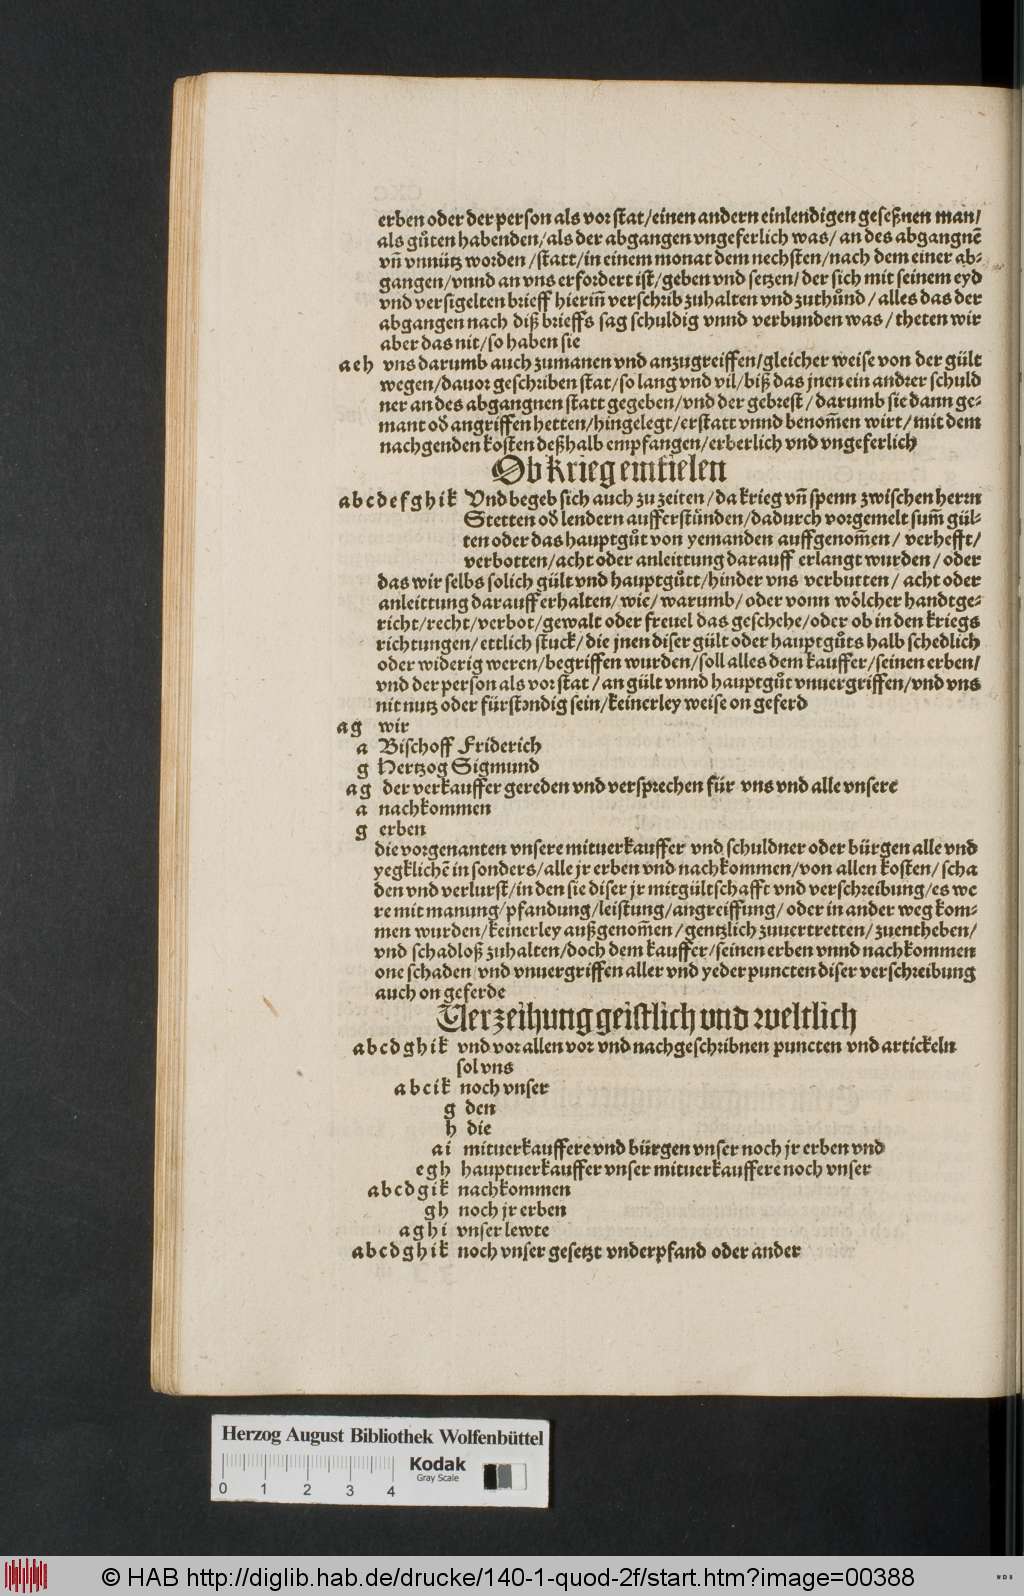 erben oder der person als vor stat/einen andern einlendigen geseßnen man/
als gůten habenden/als der abgangen vngeferlich was/ an des abgangnē
vn̄ vnnütz worden/statt/in einem monat dem nechsten/nach dem einer ab-
gangen/vnnd an vns erfordert ist/geben vnd setzen/der sich mit seinem eyd
vnd versigelten brieff hierin̄ verschrib zuhalten vnd zuthůnd/alles das der
abgangen nach diß brieffs sag schuldig vnnd verbunden was/theten wir
aber das nit/so haben sie
a e h vns darumb auch zumanen vnd anzugreiffen/gleicher weise von der gült
wegen/dauor geschriben stat/so lang vnd vil/biß das jnen ein andrer schuld
ner an des abgangnen statt gegeben/vnd der gebrest/darumb sie dann ge-
mant od angriffen hetten/hingelegt/erstatt vnnd benom̄en wirt/mit dem
nachgenden kosten deßhalb empfangen/erberlich vnd vngeferlich
Ob krieg emtfielen
a b c d e f g h i k Vnd begeb sich auch zu zeiten/da krieg vn̄ spenn zwischen herrn
Stetten od lendern aufferstünden/dadurch vorgemelt sum̄ gül-
ten oder das hauptgůt von yemanden auffgenom̄en/ verhefft/
verbotten/acht oder anleittung darauff erlangt wurden/oder
das wir selbs solich gült vnd hauptgůtt/hinder vns verbutten/ acht oder
anleittung darauff erhalten/wie/warumb/oder vonn wölcher handtge-
richt/recht/verbot/gewalt oder freuel das geschehe/oder ob in den kriegs
richtungen/ettlich stuck/die jnen diser gült oder hauptgůts halb schedlich
oder widerig weren/begriffen wurden/soll alles dem kauffer/seinen erben/
vnd der person als vor stat/an gült vnnd hauptgůt vnuergriffen/vnd vns
nit nutz oder fürstendig sein/keinerley weise on geferd
a g wir
a Bischoff Friderich
g Hertzog Sigmund
a g der verkauffer gereden vnd versprechen für vns vnd alle vnsere
a nachkommen
g erben
die vorgenanten vnsere mituerkauffer vnd schuldner oder bürgen alle vnd
yegklichē in sonders/alle jr erben vnd nachkommen/von allen kosten/scha
den vnd verlurst/in den sie diser jr mitgültschafft vnd verschreibung/es we
re mit manung/pfandung/leistung/angreiffung/oder in ander weg kom-
men wurden/keinerley außgenom̄en/gentzlich zuuertretten/zuentheben/
vnd schadloß zuhalten/doch dem kauffer/seinen erben vnnd nachkommen
one schaden vnd vnuergriffen aller vnd yeder puncten diser verschreibung
auch on geferde
Verzeihung geistlich vnd weltlich
a b c d g h i k vnd vor allen vor vnd nachgeschribnen puncten vnd artickeln
sol vns
a b c i k noch vnser
g den
h die
a i mituerkauffere vnd bürgen vnser noch jr erben vnd
e g h hauptuerkauffer vnser mituerkauffere noch vnser
a b c d g i k nachkommen
g h noch jr erben
a g h i vnser lewte
a b c d g h i k noch vnser gesetzt vnderpfand oder ander
Herzog August Bibliothek Wolfenbüttel
Kodak
Gray Scale
0 1 2 3 4
© HAB http://diglib.hab.de/drucke/140-1-quod-2f/start.htm?image=00388